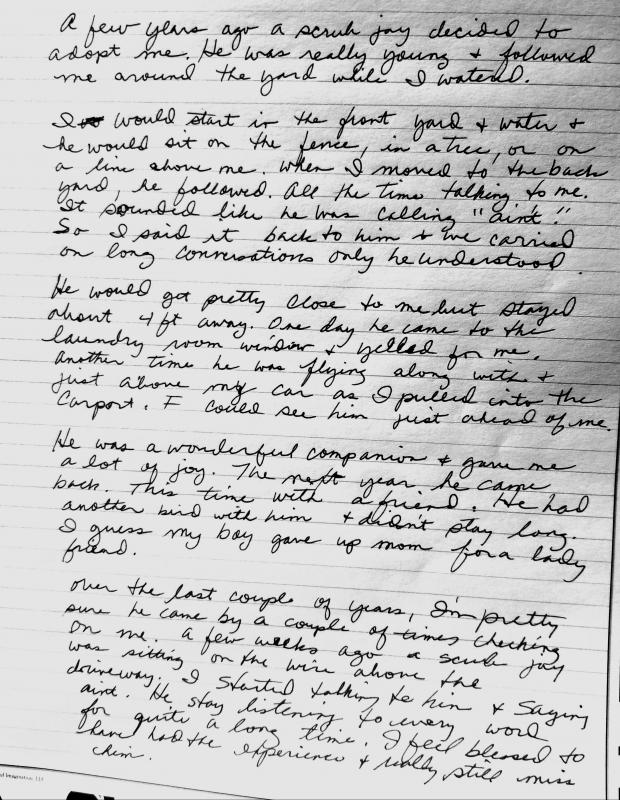 A few years ago a scrub jay decided to
adopt me. He was really young & followed
me around the yard while I watered.
I would start in the front yard & water &
he would sit on the fence, in a tree, or on
a line above me. When I moved to the back
yard, he followed. All the time talking to me.
It sounded like he was calling "aint".
So I said it back to him & we carried
on long conversations only he understood.
He would get pretty close to me but stayed
about 4 ft away. One day he came to the
laundry room window & yelled for me.
Another time he was flying along with &
just above my car as I pulled into the
Carport. I could see him just ahead of me.
He was a wonderful companion & gave me
a lot of joy. The next year he came
back. This time with a friend. He had
another bird with him & didn't stay long.
I guess my boy gave up mom for a lady
friend.
Over the last couple of years, I'm pretty
sure he came by a couple of times checking
on me. A few weeks ago a scrub jay
was sitting on the wire above the
driveway. I started talking to him & saying
aint. He stay listening to every word
for quite a long time. I feel blessed to
have had the experience & really still miss
him.